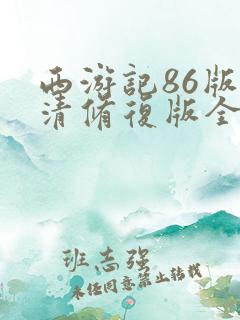 西游记86版
清修复版全
班志强
未经同意禁止转载